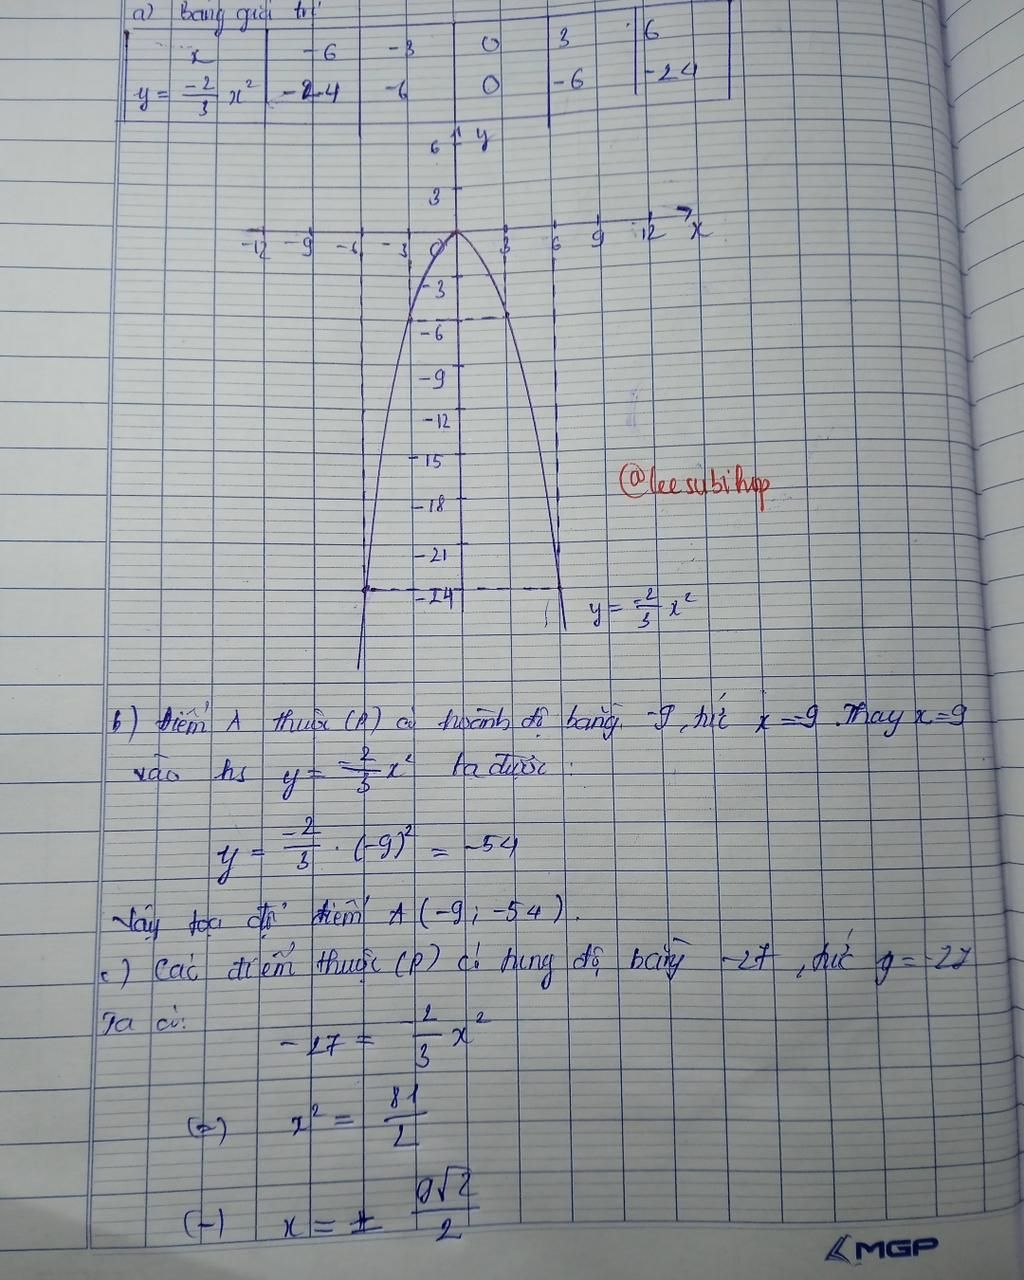 a) Bảng giá trị
x -6 -3 0 3 6
y = -2/3 x² -24 -6 0 -6 -24
y
6
3
-12 -9 -6 -3 0 3 6 9 12 x
-3
-6
-9
-12
-15
-18
-21
-24
@leesubihop
y = -2/3 x²
b) Điểm A thuộc (P) có hoành độ bằng -9, tức x = -9. Thay x = 9
vào hs y = -2/3 x² ta được:
y = -2/3 . (-9)² = -54
Vậy tọa độ điểm A (-9; -54).
c) Các điểm thuộc (P) có tung độ bằng -27, tức y = -27
Ta có:
-27 = -2/3 x²
(=) x² = 81/2
(=) x = ± 9√2/2
MGP